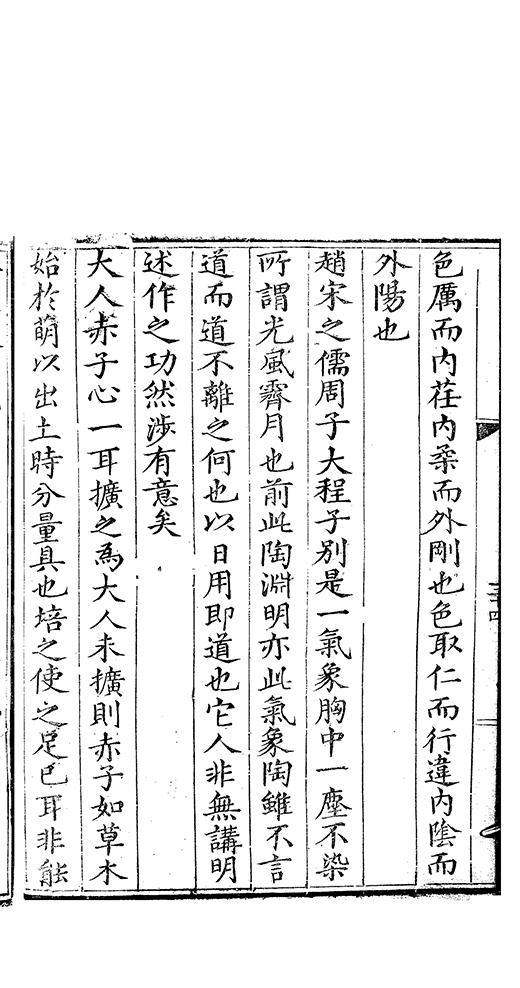 色厲而內荏內柔而外剛也色取仁而行違內陰而
外陽也
趙宋之儒周子大程子別是一氣象胸中一塵不染
所謂光風霽月也前此陶淵明亦此氣象陶雖不言
道而道不離之何也以日用即道也它人非無講明
述作之功然涉有意矣
大人赤子心一耳擴之為大人未擴則赤子如草木
始於萌以出土時分量具也培之使之足已耳非能